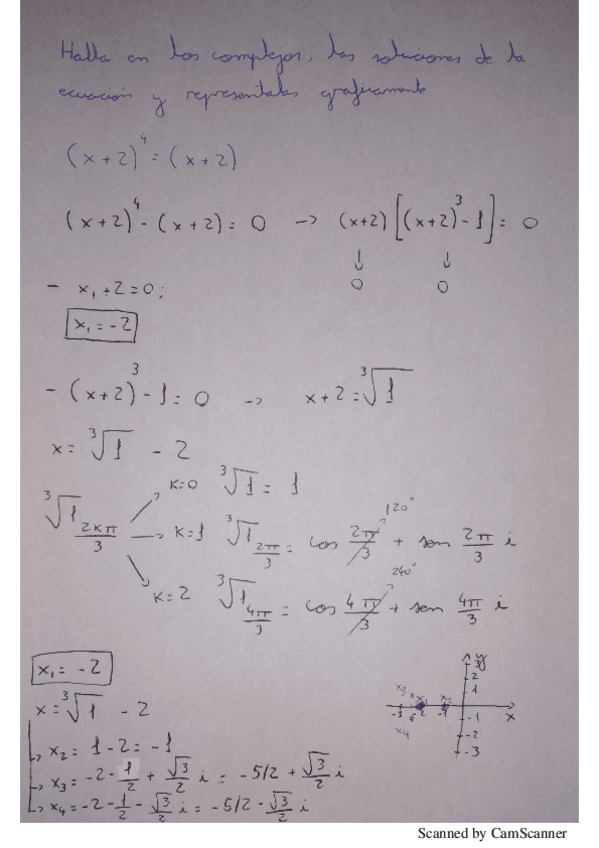 Halla en los complejos, las soluciones de la
ecuación y representalas graficamente
(x+2)⁴ = (x+2)
(x+2)⁴ - (x+2) = 0 -> (x+2) [(x+2)³ - 1] = 0
↓ ↓
0 0
- x₁ + 2 = 0;
x₁ = -2
- (x+2)³ - 1 = 0 -> x+2 = ³√1
x = ³√1 - 2
K=0 ³√1 = 1
³√1 2kπ/3 K=1 ³√1 2π/3 = cos 2π/3 + sen 2π/3 i
120°
K=2 ³√1 4π/3 = cos 4π/3 + sen 4π/3 i
240°
x₁ = -2
x = ³√1 - 2
x₂ = 1 - 2 = -1
x₃ = -2 - 1/2 + √3/2 i = -5/2 + √3/2 i
x₄ = -2 - 1/2 - √3/2 i = -5/2 - √3/2 i
y
3
2
1
x₃ x₁ x₂
-3 -2 -1 x
x₄
-1
-2
-3
Scanned by CamScanner